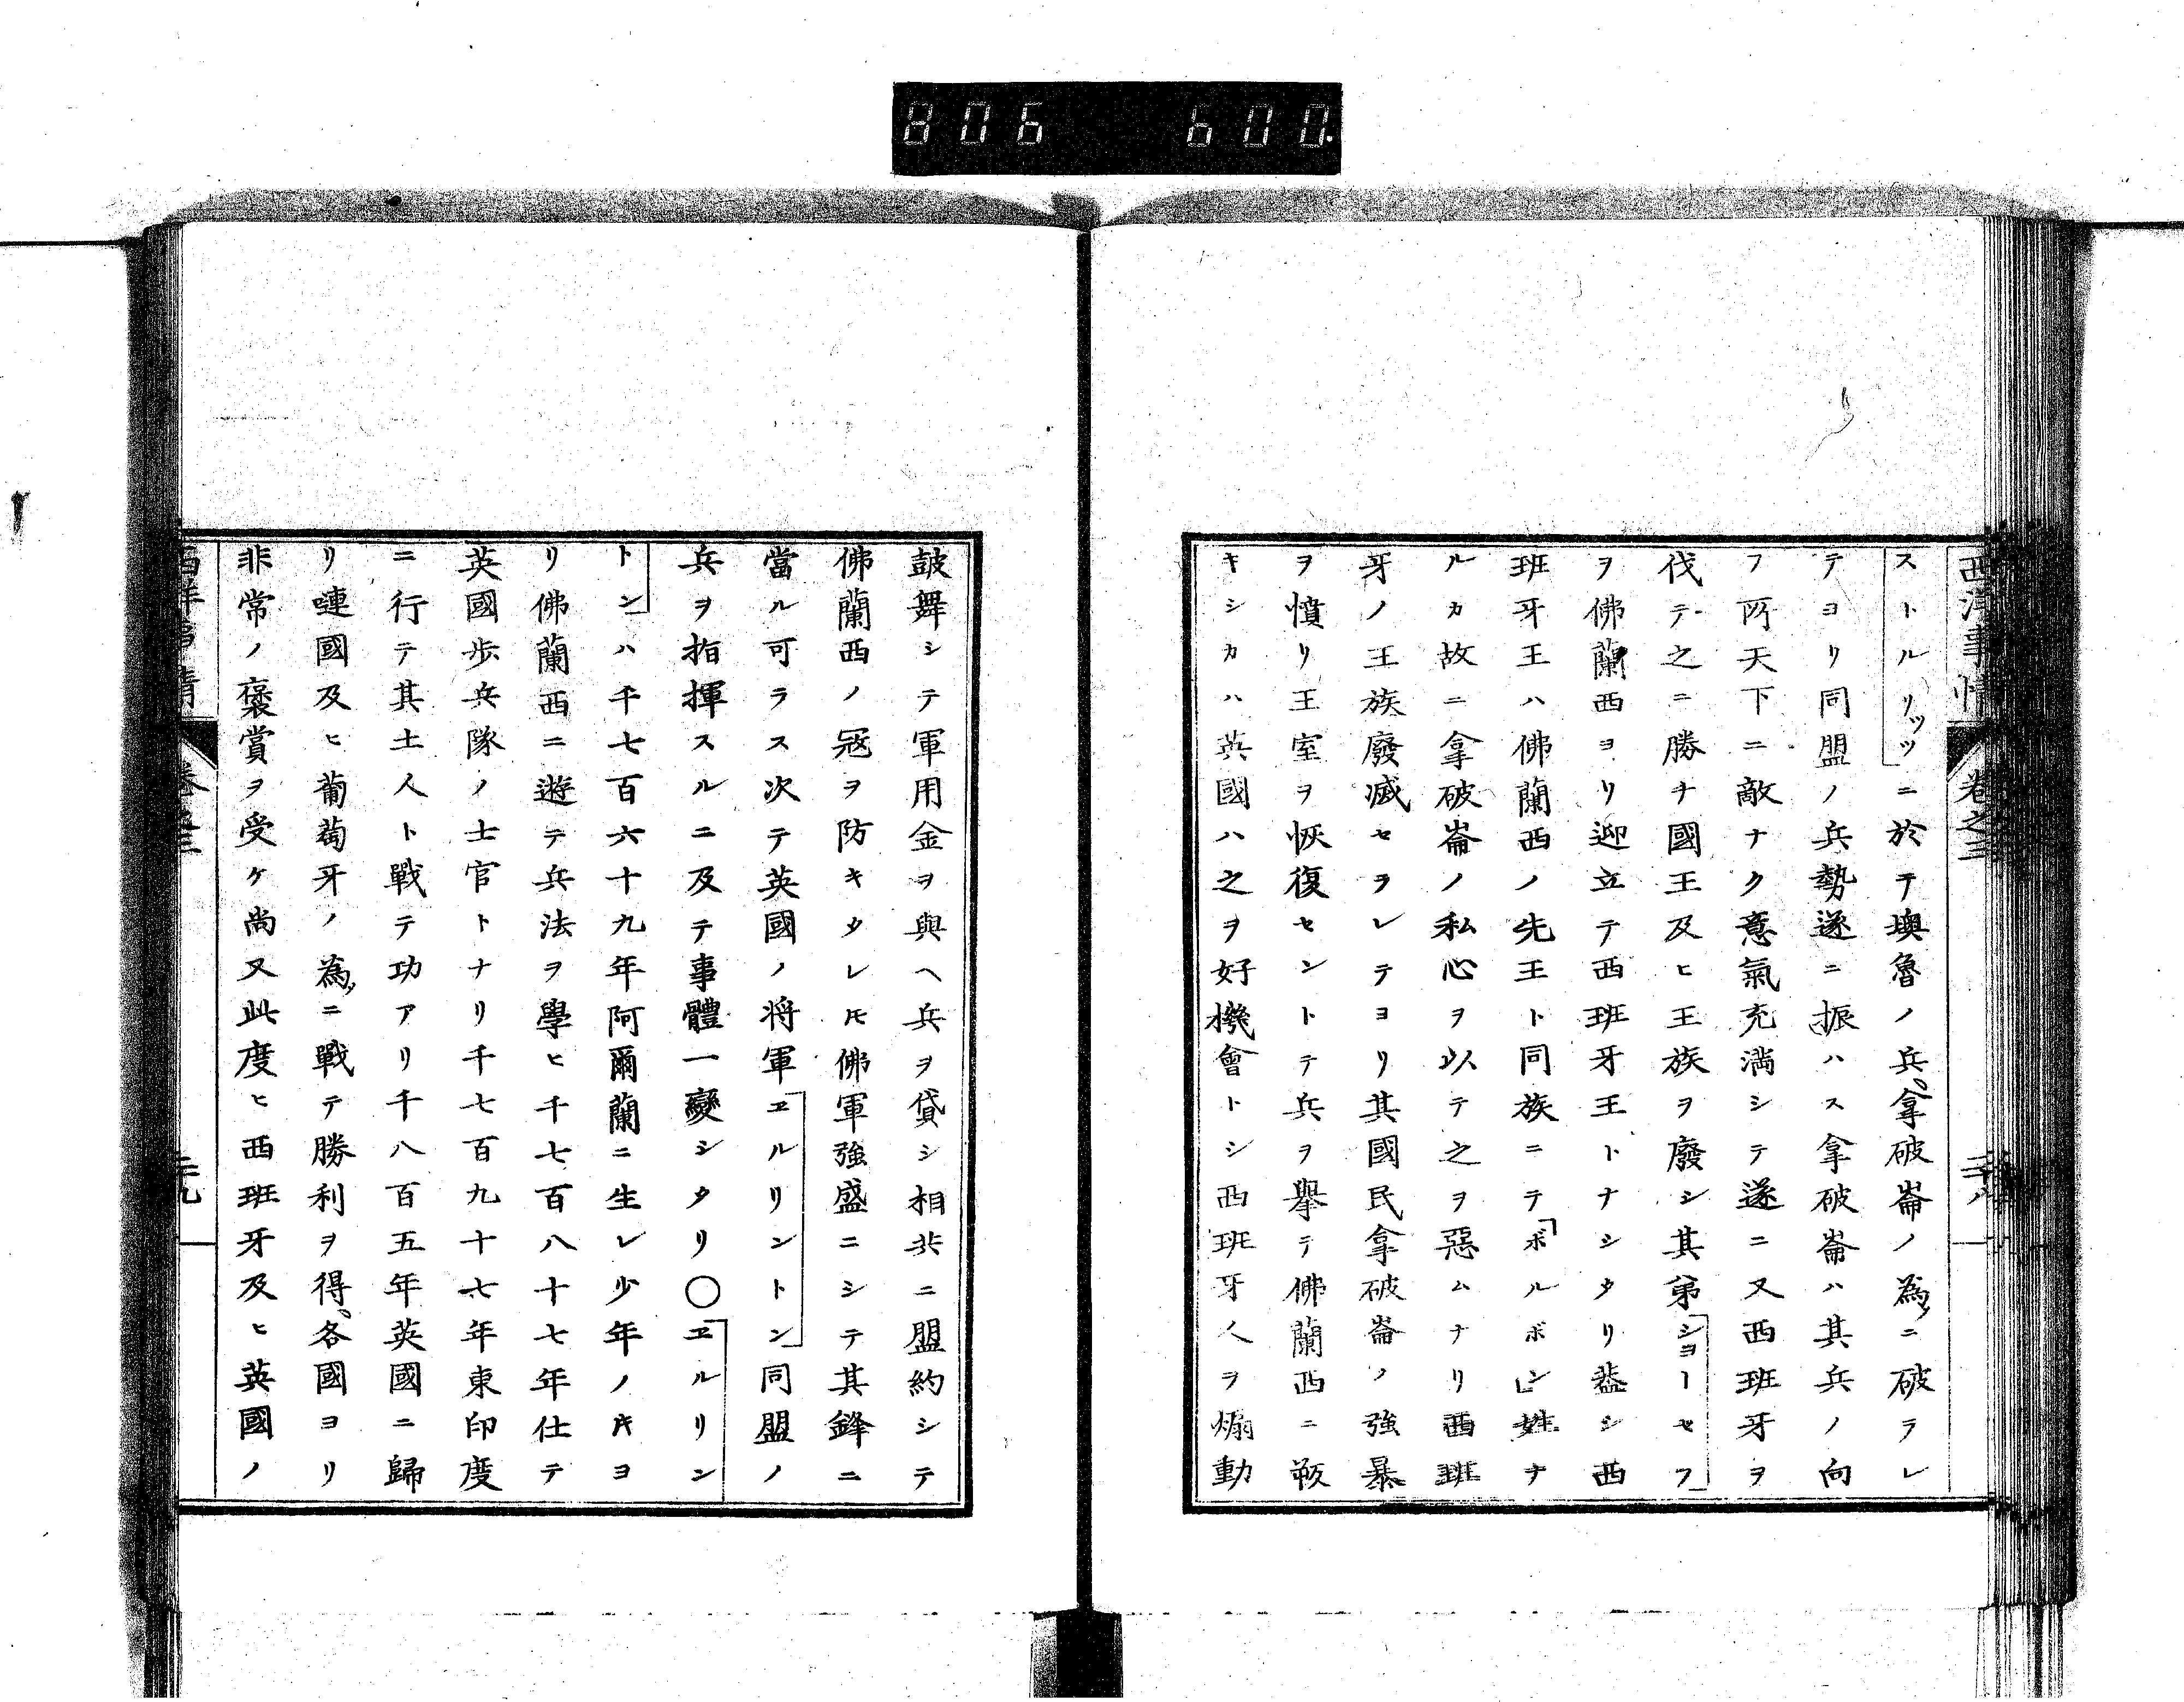 806 600.
西洋事情 卷之三 二十八
ストルリッツニ於テ墺魯ノ兵、拿破崙ノ為メニ破ラレ
テヨリ同盟ノ兵勢遂ニ振ハス拿破崙ハ其兵ノ向
フ所天下ニ敵ナク意氣充満シテ遂ニ又西班牙ヲ
伐テ之ニ勝チ國王及ヒ王族ヲ廢シ其弟「ショーセフ」
ヲ佛蘭西ヨリ迎立テ西班牙王トナシタリ蓋シ西
班牙王ハ佛蘭西ノ先王ト同族ニテ「ボルボン」姓ナ
ルカ故ニ拿破崙ノ私心ヲ以テ之ヲ惡ムナリ西班
牙ノ王族廢滅セラレテヨリ其國民拿破崙ノ強暴
ヲ憤リ王室ヲ恢復セントテ兵ヲ擧テ佛蘭西ニ敵
キシカハ英國ハ之ヲ好機會トシ西班牙人ヲ煽動
鼓舞シテ軍用金ヲ與ヘ兵ヲ貸シ相共ニ盟約シテ
佛蘭西ノ冦ヲ防キタレ𪜈佛軍強盛ニシテ其鋒ニ
當ル可ラス次テ英國ノ将軍「ヱルリントン」同盟ノ
兵ヲ指揮スルニ及テ事體一變シタリ○「ヱルリン
トン」ハ千七百六十九年阿爾蘭ニ生レ少年ノ𪜈ヨ
リ佛蘭西ニ遊テ兵法ヲ學ヒ千七百八十七年仕テ
英國歩兵隊ノ士官トナリ千七百九十七年東印度
ニ行テ其土人ト戰テ功アリ千八百五年英國ニ歸
リ嗹國及ヒ葡萄牙ノ為メニ戰テ勝利ヲ得、各國ヨリ
非常ノ褒賞ヲ受ケ尚又此度ヒ西班牙及ヒ英國ノ
西洋事情 卷之三 二十九